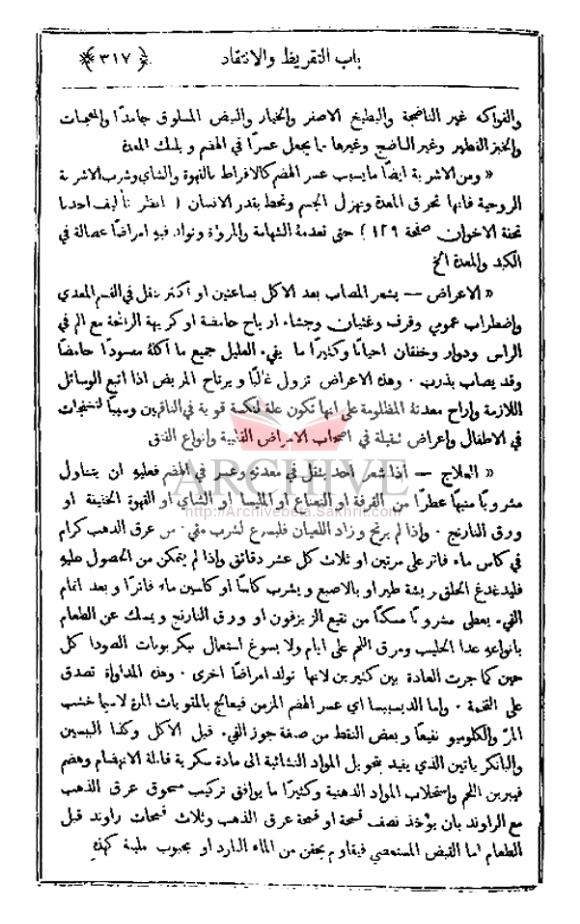 باب التقريظ والانتقاد ﴿ ٣١٧ ﴾
والفواكه غير الناضجة والبطيخ الاصفر والخيار والبيض المسلوق جامدًا والمحمصات
والخبز الفطير وغير الناضج وغيرها ما يجعل عسرًا في الهضم ويلبك المعدة
« ومن الاشربة ايضًا ما يسبب عسر الهضم كالافراط بالقهوة والشاي وشرب الاشربة
الروحية فانها تحرق المعدة وتهزل الجسم وتحط بقدر الانسان ( انظر تأليف احدنا
تحفة الاخوان صفحة ١٢٩ ) حتى تعدمهُ الشهامة والمروَّة وتولد فيهِ امراضًا عضالة في
الكبد والمعدة الخ
« الاعراض — يشعر المصاب بعد الاكل بساعتين او اكثر بثقل في القسم المعدي
واضطراب عمومي وقرف وغثيان وجشاء ارياح حامضة او كريهة الرائحة مع الم في
الراس ودوار وخفقان احيانًا وكثيرًا ما يقيء العليل جميع ما آكلهُ ممسودًا حامضًا
وقد يصاب بذرب . وهذه الاعراض تزول غالبًا ويرتاح المريض اذا اتبع الوسائل
اللازمة واراح معدتهُ المظلومة على انها تكون علة لنكسة قوية في الناقهين وسببًا لتشنجات
في الاطفال واعراض ثقيلة في اصحاب الامراض القلبية وانواع الفتق
« العلاج — اذا شعر احد بثقل في معدتهِ وعسر في الهضم فعليهِ ان يتناول
مشروبًا منبهًا عطرًا من القرفة او النعناع او المليسا او الشاي او القهوة الخفيفة او
ورق النارنج . واذا لم يرتح وزاد الغثيان فليسرع لشرب مقيء من عرق الذهب كرام
في كاس ماء فاتر على مرتين او ثلاث كل عشر دقائق واذا لم يتمكن من الحصول عليهِ
فليدغدغ الحلق بريشة طير او بالاصبع ويشرب كاسًا او كاسين ماء فاترًا وبعد اتمام
القيء يعطى مشروبًا مسكنًا من نقيع الزيزفون او ورق النارنج ويمسك عن الطعام
بانواعهِ عدا الحليب ومرق اللحم على ايام ولا يسوغ استعمال بيكربونات الصودا كل
حين كما جرت العادة بين كثيرين لانها تولد امراضًا اخرى . وهذه المداواة تصدق
على التخمة . واما الديسبسيا اي عسر الهضم المزمن فيعالج بالمقويات المرة لاسيما خشب
المرّ والكلومبو نقيعًا وبعض النقط من صبغة جوز القيء قبل الاكل وكذا الببسين
والبانكرياتين الذي يفيد بتحويل المواد النشائية الى مادة سكرية قابلة الانهضام وهضم
فيبرين اللحم واستحلاب المواد الدهنية وكثيرًا ما يوافق تركيب مسحوق عرق الذهب
مع الراوند بان يؤخذ نصف قمحة او قمحة عرق الذهب وثلاث قمحات راوند قبل
الطعام اما القبض المستعصي فيقاوم بحقن من الماء البارد او بحبوب ملينة كهذه
ARCHIVE
http://Archivebeta.Sakhrit.com